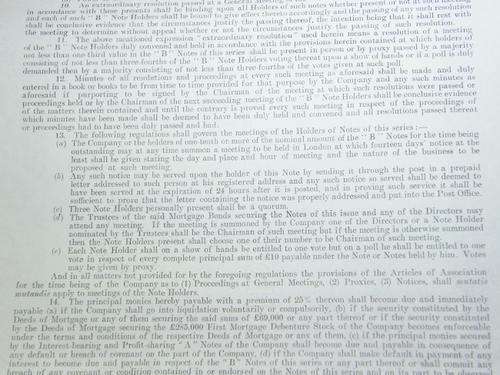 10. An extraordinary resolution passed at a General Meeting
in accordance with these presents shall be binding upon all Holders of such Notes whether present or not at such meeting
and each of such " B " Note Holders shall be bound to give effect thereto accordingly and the passing of any such resolution
shall be conclusive evidence that the circumstances justify the passing thereof, the intention being that it shall rest with
the meeting to determine without appeal whether or not the circumstances justify the passing of such resolution.
11. The above mentioned expression " extraordinary resolution " used herein means a resolution of a meeting
of the " B " Note Holders duly convened and held in accordance with the provisions herein contained at which holders of
not less than one third value in the " B " Notes of this series shall be present in person or by proxy passed by a majority
consisting of not less than three-fourths of the " B " Note Holders voting thereat upon a show of hands or if a poll is duly
demanded then by a majority consisting of not less than three-fourths of the votes given at such poll.
12. Minutes of all resolutions and proceedings at every such meeting as aforesaid shall be made and duly
entered in a book or books to be from time to time provided for that purpose by the Company and any such minutes as
aforesaid if purporting to be signed by the Chairman of the meeting at which such resolutions were passed or
proceedings held or by the Chairman of the next succeeding meeting of the " B " Note Holders shall be conclusive evidence
of the matters therein contained and until the contrary is proved every such meeting in respect of the proceedings of
which minutes have been made shall be deemed to have been duly held and convened and all resolutions passed thereat
or proceedings had to have been duly passed and had.
13. The following regulations shall govern the meetings of the Holders of Notes of this series :—
(a) The Company or the holders of one-tenth or more of the nominal amount of the " B " Notes for the time being
outstanding may at any time summon a meeting to be held in London at which fourteen days' notice at the
least shall be given stating the day and place and hour of meeting and the nature of the business to be
proposed at such meeting.
(b) Any such notice may be served upon the holder of this Note by sending it through the post in a prepaid
letter addressed to such person at his registered address and any such notice so served shall be deemed to
have been served at the expiration of 24 hours after it is posted, and in proving such service it shall be
sufficient to prove that the letter containing the notice was properly addressed and put into the Post Office.
(c) Three Note Holders personally present shall be a quorum.
(d) The Trustees of the said Mortgage Bonds securing the Notes of this issue and any of the Directors may
attend any meeting. If the meeting is summoned by the Company one of the Directors or a Note Holder
nominated by the Trustees shall be the Chairman of such meeting but if the meeting is otherwise summoned
then the Note Holders present shall choose one of their number to be Chairman of such meeting.
(e) Each Note Holder shall on a show of hands be entitled to one vote but on a poll he shall be entitled to one
vote in respect of every complete principal sum of £10 payable under the Note or Notes held by him. Votes
may be given by proxy.
And in all matters not provided for by the foregoing regulations the provisions of the Articles of Association
for the time being of the Company as to (1) Proceedings at General Meetings, (2) Proxies, (3) Notices, shall mutatis
mutandis apply to meetings of the Note Holders.
14. The principal monies hereby payable with a premium of 25% thereon shall become due and immediately
payable (a) if the Company shall go into liquidation voluntarily or compulsorily, (b) if the security constituted by the
Deeds of Mortgage or any of them securing the said sums of £60,000 or any part thereof or if the security constituted
by the Deeds of Mortgage securing the £285,000 First Mortgage Debenture Stock of the Company becomes enforceable
under the terms and conditions of the respective Deeds of Mortgage or any of them, (c) if the principal monies secured
by the Interest-bearing and Profit-sharing " A " Notes of the Company shall become due and payable in consequence of
any default or breach of covenant on the part of the Company, (d) if the Company shall make default in payment of any
interest to become due and payable in respect of the " B " Notes of this series or any part thereof or shall commit any
breach of any covenant or condition contained in or endorsed on the Notes of this series and on its part to be observed